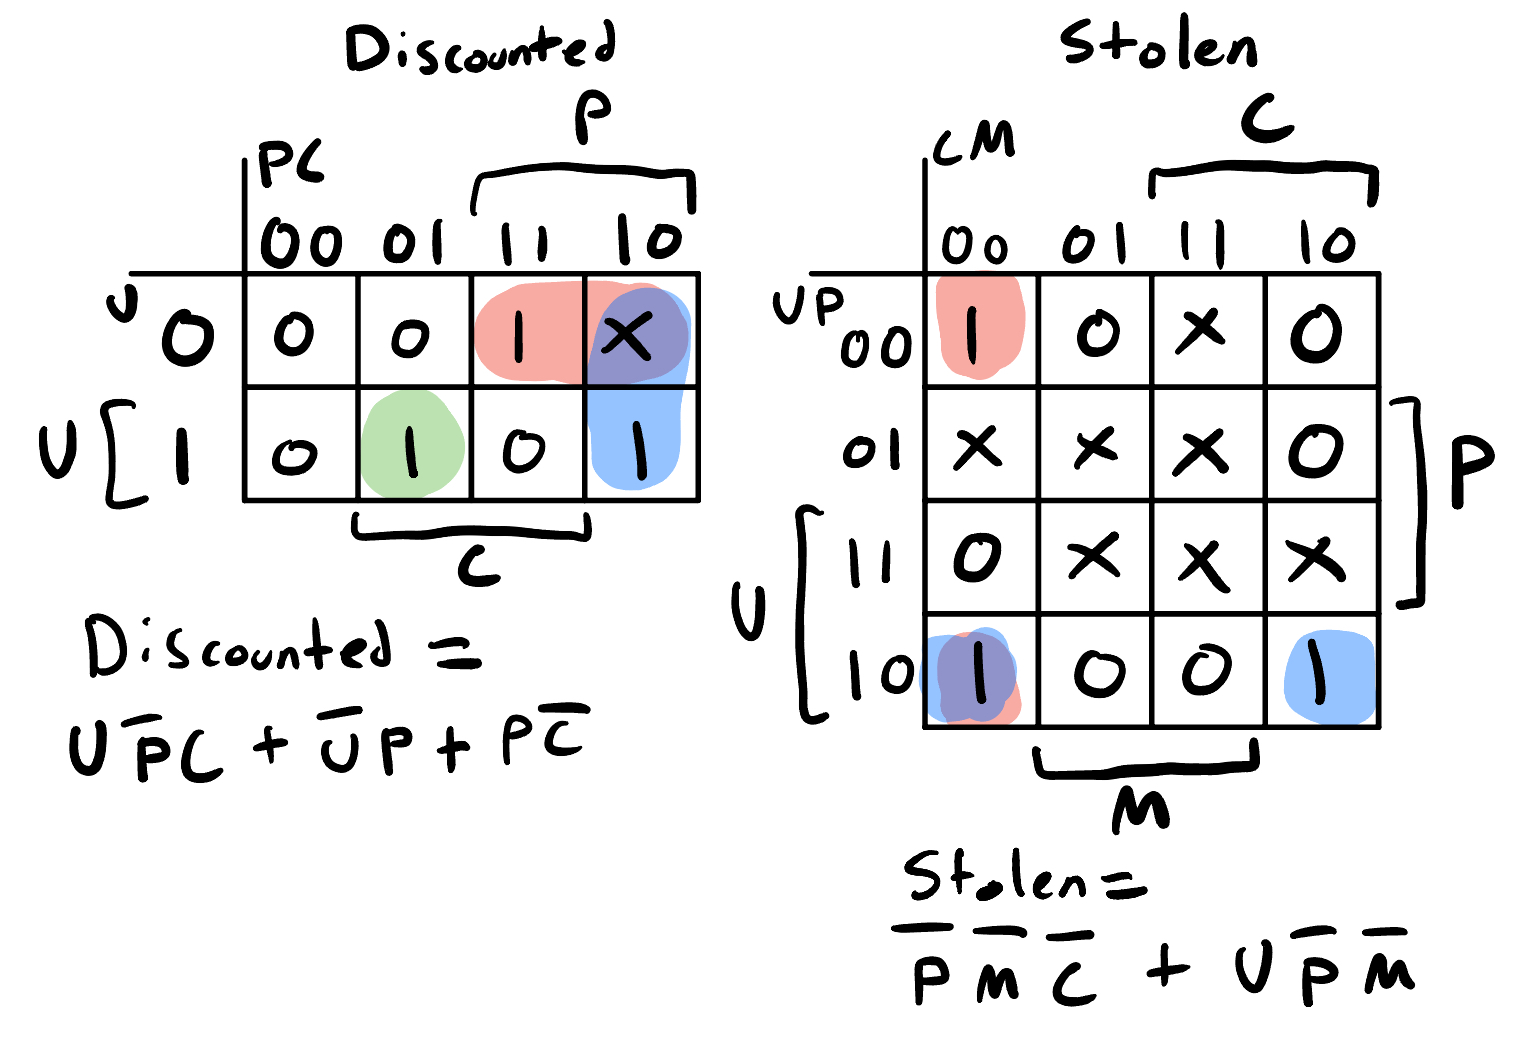 Discounted
P
PC
00 01 11 10
U
0 0 0 1 X
U 1 0 1 0 1
C
Discounted =
UP̅C + U̅P + PC̅
Stolen
C
CM
00 01 11 10
UP
00 1 0 X 0
01 X X X 0
P
11 0 X X X
U
10 1 0 0 1
M
Stolen =
P̅ M̅ C̅ + U P̅ M̅